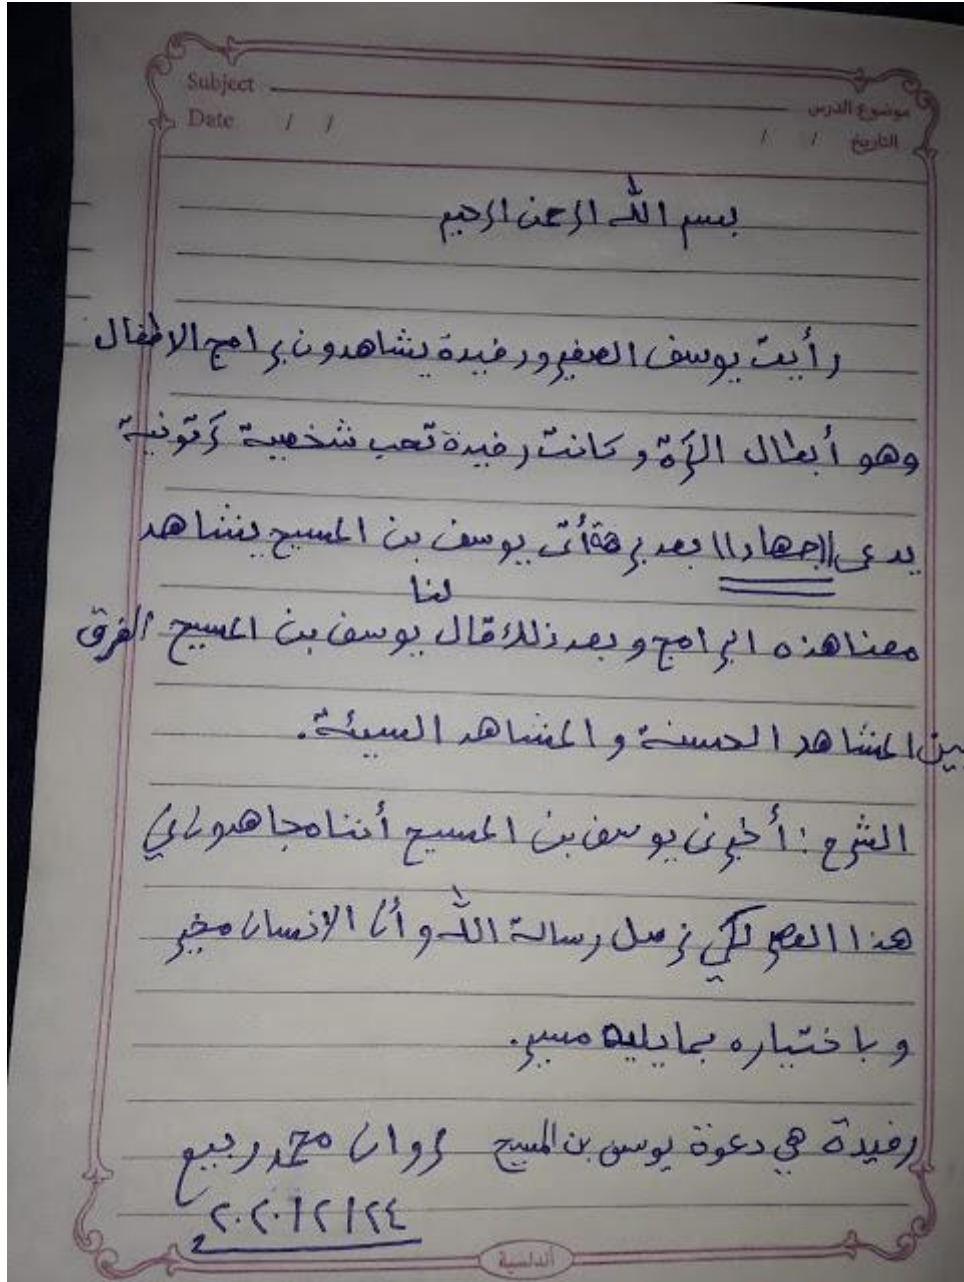 Subject موضوع الدرس
Date / / التاريخ / /
بسم الله الرحمن الرحيم
رأيت يوسف الصغير ورفيدة يشاهدون برامج الاطفال
وهو أبطال الكرة و كانت رفيدة تحب شخصية كرتونية
يدعى ((جهاد)) بعد برهة أتى يوسف بن المسيح يشاهد
معنا هذه البرامج و بعد ذلك قال لنا يوسف بن المسيح الفرق
بين المشاهد الحسنة و المشاهد السيئة.
الشرح : أخبرنى يوسف بن المسيح أننا مجاهدون في
هذا العصر لكي نوصل رسالة الله و أن الانسان مخير
و باختياره بما يليه مسير.
رفيدة هي دعوة يوسف بن المسيح مروان محمد ربيع
٢٠٢٠/٢/٢٤
أندلسية